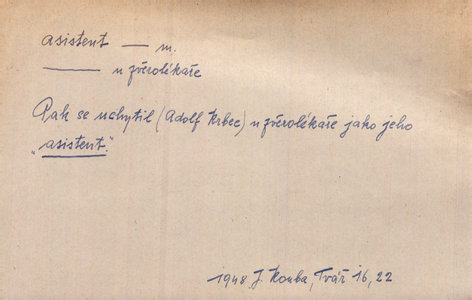 asistent — m.
—— u zvěrolékaře
Pak se uchytil (Adolf Krbec) u zvěrolékaře jako jeho
„asistent."
1948 J. Kouba, Tvář 16, 22